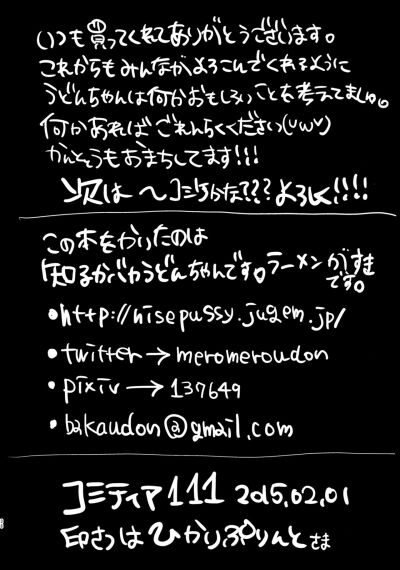 いつも買ってくれてありがとうございます。
これからもみんながよろこんでくれるように
うどんちゃんは何かおもしろいことを考えてましゅ。
何かあればごれんらくください(UωU)
かんそうもおまちしてます!!!
次は〜コミケかな???よろしく!!!!
この本をかいたのは
知るかバカうどんちゃんです。ラーメンがすきです。
•http://nisepussy.jugem.jp/
•twitter→meromeroudon
•pixiv→137649
•bakaudon@gmail.com
コミティア111 2015.02.01
印さつはひかりぷりんとさま